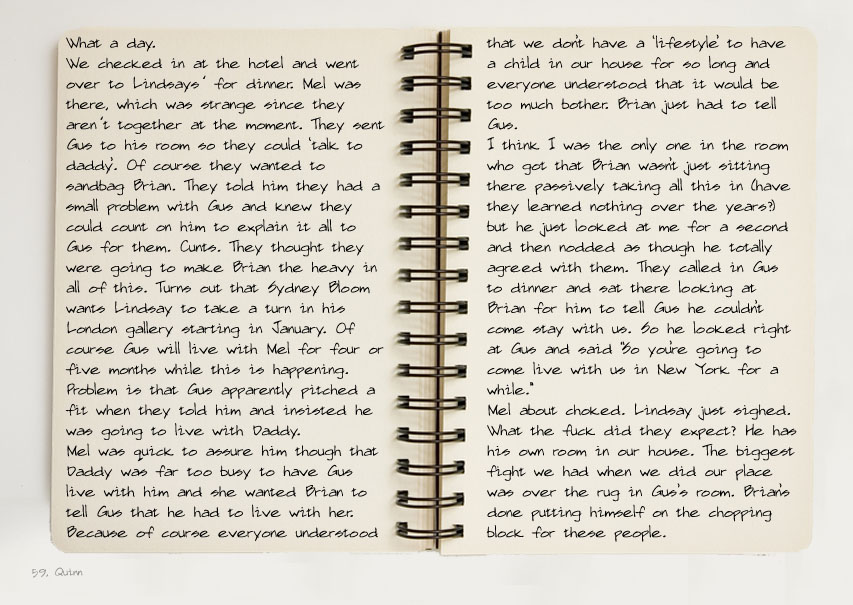 What a day.
We checked in at the hotel and went
over to Lindsays' for dinner. Mel was
there, which was strange since they
aren't together at the moment. They sent
Gus to his room so they could 'talk to
daddy'. Of course they wanted to
sandbag Brian. They told him they had a
small problem with Gus and knew they
could count on him to explain it all to
Gus for them. Cunts. They thought they
were going to make Brian the heavy in
all of this. Turns out that Sydney Bloom
wants Lindsay to take a turn in his
London gallery starting in January. Of
course Gus will live with Mel for four or
five months while this is happening.
Problem is that Gus apparently pitched a
fit when they told him and insisted he
was going to live with Daddy.
Mel was quick to assure him though that
Daddy was far too busy to have Gus
live with him and she wanted Brian to
tell Gus that he had to live with her.
Because of course everyone understood
that we don't have a 'lifestyle' to have
a child in our house for so long and
everyone understood that it would be
too much bother. Brian just had to tell
Gus.
I think I was the only one in the room
who got that Brian wasn't just sitting
there passively taking all this in (have
they learned nothing over the years?)
but he just looked at me for a second
and then nodded as though he totally
agreed with them. They called in Gus
to dinner and sat there looking at
Brian for him to tell Gus he couldn't
come stay with us. So he looked right
at Gus and said "So you're going to
come live with us in New York for a
while."
Mel about choked. Lindsay just sighed.
What the fuck did they expect? He has
his own room in our house. The biggest
fight we had when we did our place
was over the rug in Gus's room. Brian's
done putting himself on the chopping
block for these people.
59. Quinn